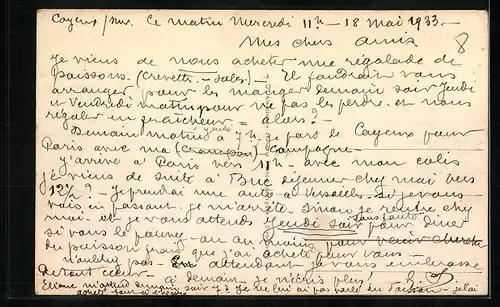 Cayeux s/mer. Ce matin Mercredi 11h - 18 Mai 1933 -
Mes chers amis
8
Je viens de nous acheter une régalade de
poissons (crevettes - soles) - Il faudrait vous
arranger pour les manger demain soir Jeudi
et Vendredi matin pour ne pas les perdre et nous
régaler en fraîcheur = alors? -
jeudi
Demain matin à 7h - je pars de Cayeux pour
Paris avec ma compagne -
J'arrive à Paris vers 11h - avec mon colis
je viens de suite à Buc déjeuner chez moi vers
12h½? - Je prendrai une auto à Versailles - si je vous
vois en passant - je m'arrête. Sinon je rentre chez
sans faute
moi - et je vous attends Jeudi soir pour dîner
si vous le pouvez - ou au moins pour venir chercher
du poisson frais que j'ai acheté pour vous -
n'oubliez pas - En attendant je vous embrasse
de tout cœur - à demain - je n'écris plus
demain soir 7h je ne lui ai pas parlé du poisson -